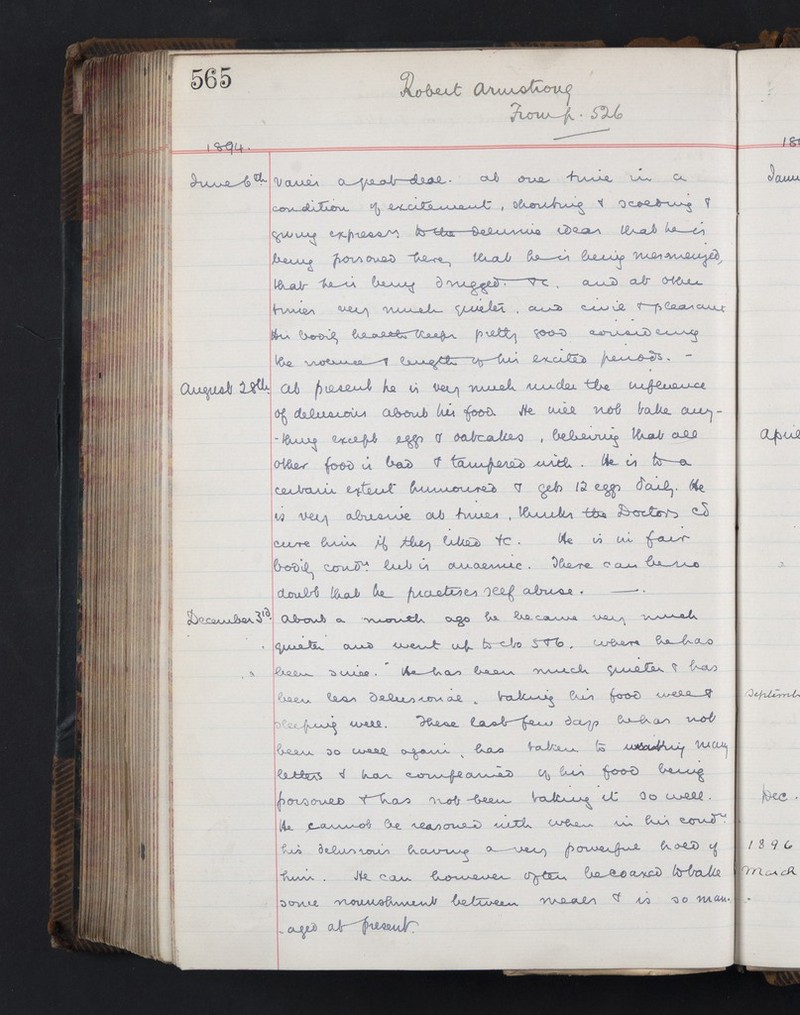 565
Robert Armstrong
From p. 526
1894.
June 6th varies a great deal. at one time in a
condition of excitement, shouting & scolding &
giving expression to the delusive ideas that he is
being poisoned here, that he is being mesmerized,
that he is being drugged. &c. and at other
times very much quieter. and civil & pleasant
His bodily health keeps pretty good considering
the violence & length of his excited periods. -
August 28th. At present he is very much under the influence
of delusions about his food. He will not take any-
-thing except eggs & oatcakes, believing that all
other food is bad & tampered with. He is to a
certain extent humoured & gets 12 eggs daily. He
is very abusive at times, thinks the Doctors cd
cure him if they liked &c. He is in fair
bodily condn but is anaemic. There can be no
doubt that he practises self abuse. —.
December 3rd. About a month ago he became very much
quieter and went up to 5 & 6. where he has
been since. He has been much quieter & has
been less delusional, taking his food well &
sleeping well. These last few days he has not
been so well again, has taken to writing many
letters & has complained of his food being
poisoned & has not been taking it so well.
He cannot be reasoned with when in his condn
his delusions having a very powerful hold of
him. He can however often be coaxed to take
some nourishment between meals & is so man-
-aged at present.
18
Janu
April
Septemb
Dec.
1896
March